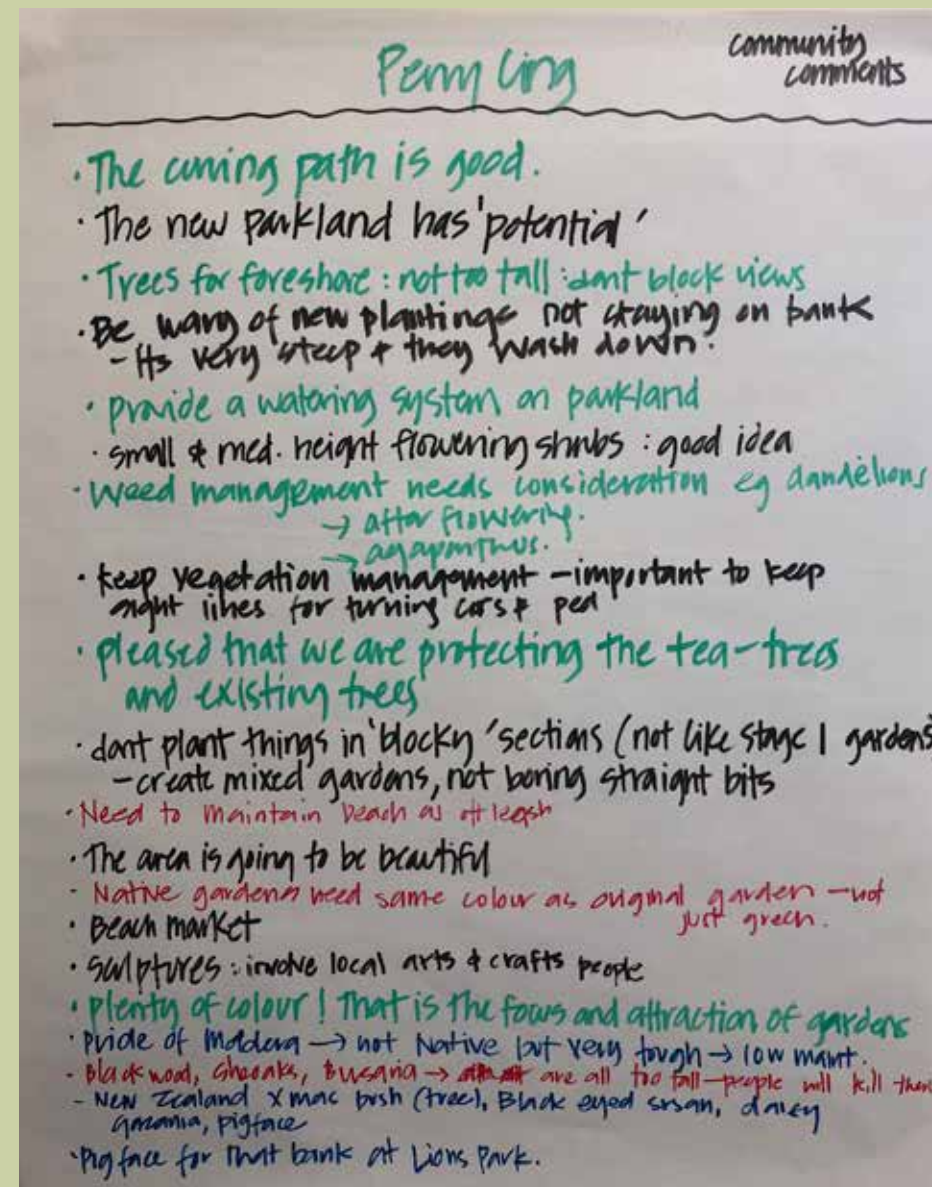 Penny Ling
community
comments
· The curving path is good.
· The new parkland has 'potential'
· Trees for foreshore : not too tall : dont block views
· Be wary of new plantings not staying on bank
- Its very steep & they wash down.
· provide a watering system on parkland
· small & med. height flowering shrubs : good idea
· Weed management needs consideration eg dandelions
→ after flowering.
→ agapanthus.
· keep vegetation management - important to keep
sight lines for turning cars & ped
· pleased that we are protecting the tea-trees
and existing trees
· dont plant things in 'blocky' sections (not like stage 1 gardens
- create mixed gardens, not boring straight bits
· Need to maintain beach as off leash
· The area is going to be beautiful
- Native gardens need same colour as original garden - not
just green.
· Beach market
· sculptures : involve local arts & crafts people
· plenty of colour ! That is the focus and attraction of gardens
· Pride of Madera → not Native but very tough → low maint.
- Blackwood, Sheoaks, Busaria → are all too tall - people will kill them
- New Zealand Xmas bush (tree), Black eyed susan, daisy
gazania, pigface
· Pig face for that bank at Lions Park.